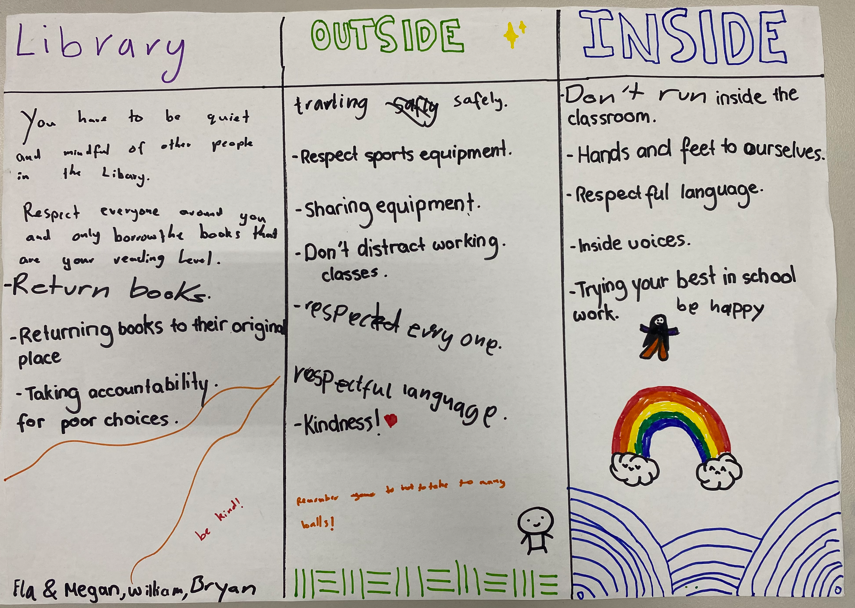 Library
You have to be quiet
and mindful of other people
in the Library.
Respect everyone around you
and only borrow the books that
are your reading level.
-Return books.
-Returning books to their original
place
-Taking accountability.
for poor choices.
be kind!
Ela & Megan, William, Bryan
OUTSIDE
safely.
-Respect sports equipment.
-Sharing equipment.
-Don't distract working.
classes.
-respected evry one.
respectful language.
-Kindness!
Remember to not to take to many
balls!
INSIDE
-Don't run inside the
classroom.
-Hands and feet to ourselves.
-Respectful language.
-Inside voices.
-Trying your best in school
work.
be happy